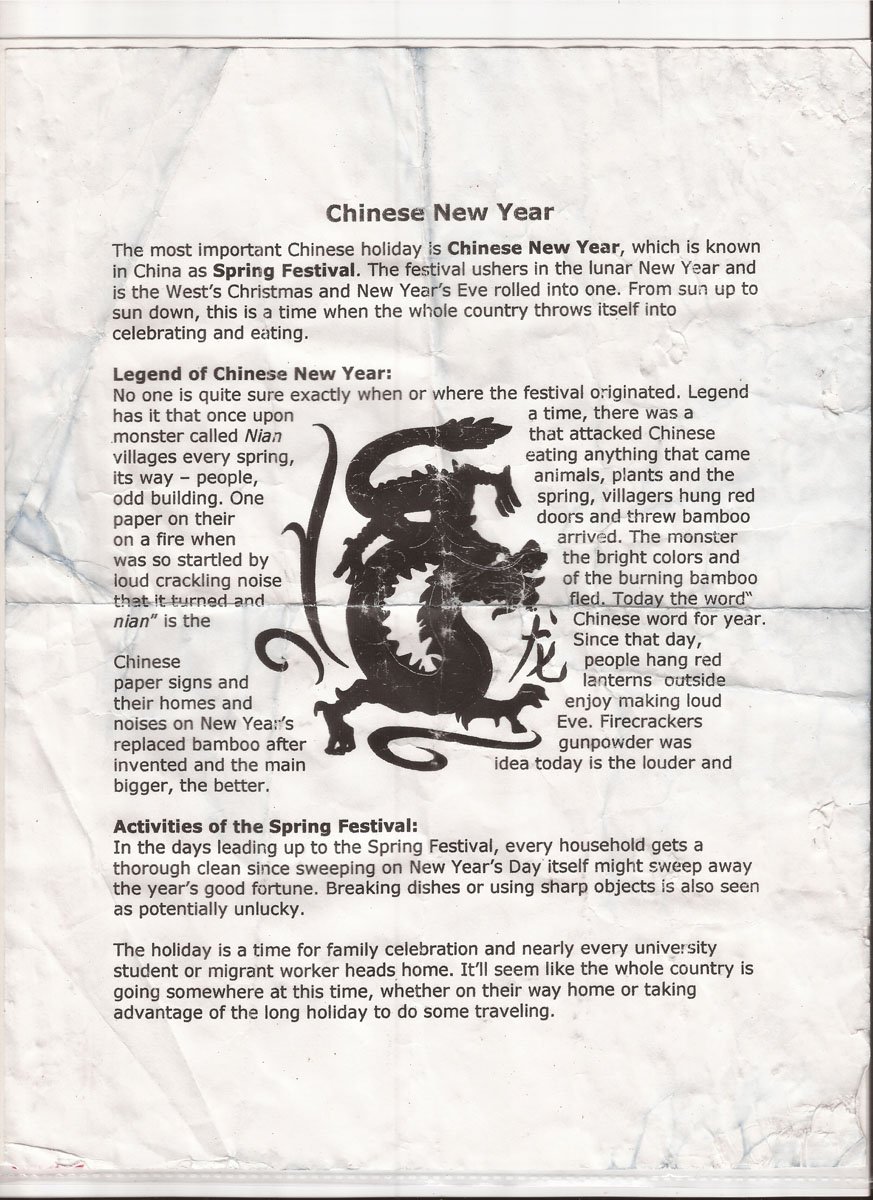 Chinese New Year
The most important Chinese holiday is Chinese New Year, which is known
in China as Spring Festival. The festival ushers in the lunar New Year and
is the West's Christmas and New Year's Eve rolled into one. From sun up to
sun down, this is a time when the whole country throws itself into
celebrating and eating.
Legend of Chinese New Year:
No one is quite sure exactly when or where the festival originated. Legend
has it that once upon a time, there was a
monster called Nian that attacked Chinese
villages every spring, eating anything that came
its way – people, animals, plants and the
odd building. One spring, villagers hung red
paper on their doors and threw bamboo
on a fire when arrived. The monster
was so startled by the bright colors and
loud crackling noise of the burning bamboo
that it turned and fled. Today the word"
nian" is the Chinese word for year.
Since that day,
龙
Chinese people hang red
paper signs and lanterns outside
their homes and enjoy making loud
noises on New Year's Eve. Firecrackers
replaced bamboo after gunpowder was
invented and the main idea today is the louder and
bigger, the better.
Activities of the Spring Festival:
In the days leading up to the Spring Festival, every household gets a
thorough clean since sweeping on New Year's Day itself might sweep away
the year's good fortune. Breaking dishes or using sharp objects is also seen
as potentially unlucky.
The holiday is a time for family celebration and nearly every university
student or migrant worker heads home. It'll seem like the whole country is
going somewhere at this time, whether on their way home or taking
advantage of the long holiday to do some traveling.